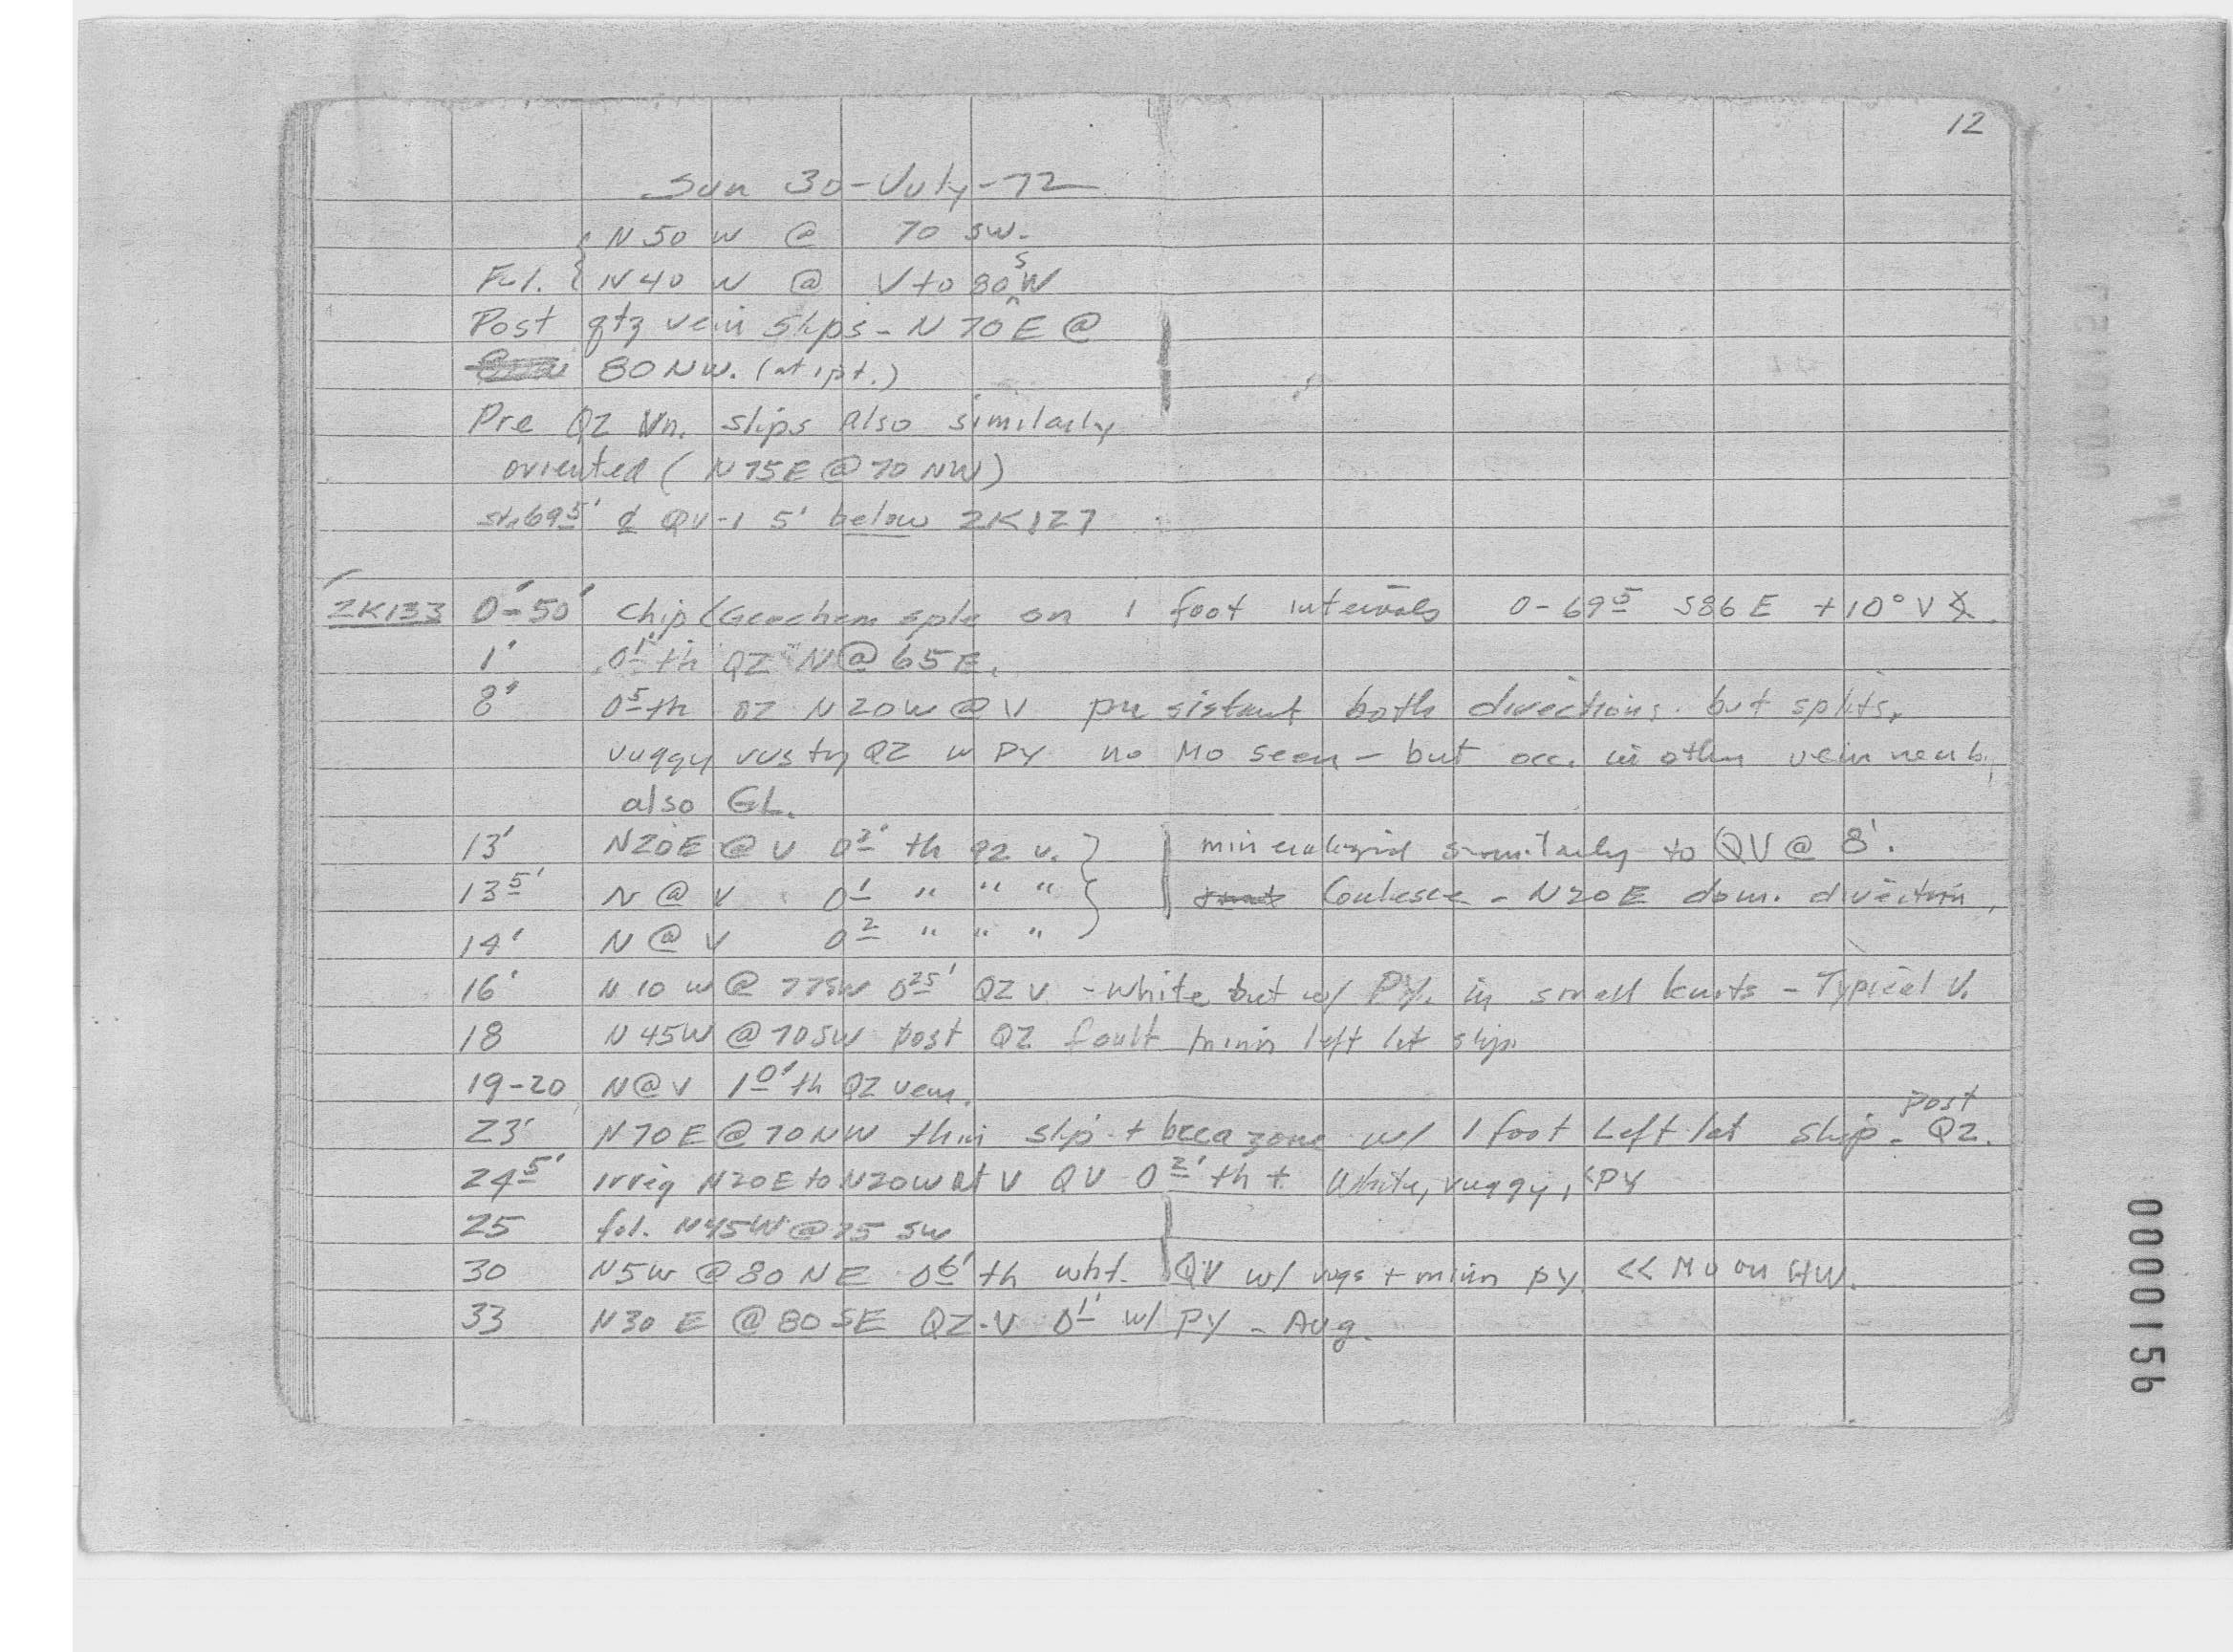 12
Sun 30-July-72
N 50 W @ 70 SW.
Fol. { N 40 W @ V to 80 SW
Post qtz vein slips - N 70 E @
80 NW. (at 1 pt.)
Pre QZ Vn. slips also similarly
oriented ( N 75 E @ 70 NW)
Sta 69 5' QV-1 5' below ZK127
ZK133 0'-50' Chip (Geochem sple on 1 foot intervals 0-69 5 S86E +10° V
1' 0 1' th QZ N @ 65 E.
8' 0 5 th QZ N20W @ V persistant both directions. but splits.
vuggy rusty QZ w PY no Mo seen - but occ. in other vein nearb.
also GL.
13' N20E @ V 0 2' th qz v. } mineralized similarly to QV @ 8'.
13 5' N @ V 0 1 " " " Coalesce - N20E dom. direction.
14' N @ V 0 2 " " "
16' N 10 W @ 77SW 0 25' QZ V - white but w/ PY. in small knots - Typical V.
18 N 45W @ 70SW post QZ fault minor left lat slip.
19-20 N @ V 1 0' th QZ vein.
23' N70E @ 70NW thin slip + breca zone w/ 1 foot Left lat slip - post QZ.
24 5' irreg N20E to N20W at V QV 0 2' th ± White, vuggy, <PY
25 fol. N45W @ 75 SW
30 N5W @ 80 NE 0 6' th wht. QV w/ vugs + minor py. << Mo on HW.
33 N30 E @ 80 SE QZ-V 0 1' w/ PY - Avg.
0000156